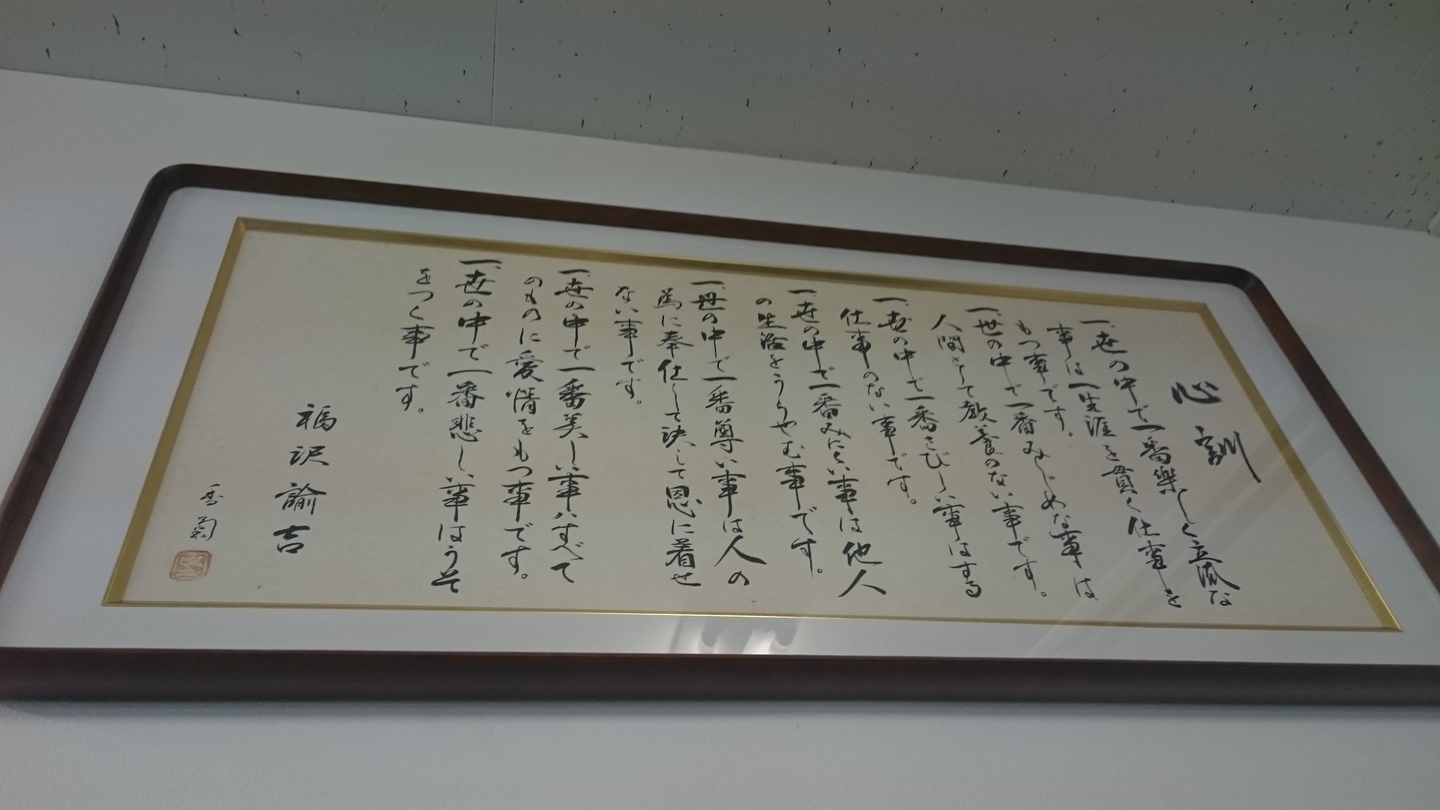 心訓
一、世の中で一番楽しく立派な
事は一生涯を貫く仕事を
もつ事です。
一、世の中で一番みじめな事は
人間として教養のない事です。
一、世の中で一番さびしい事はする
仕事のない事です。
一、世の中で一番みにくい事は他人
の生活をうらやむ事です。
一、世の中で一番尊い事は人の
為に奉仕して決して恩に着せ
ない事です。
一、世の中で一番美しい事はすべて
のものに愛情をもつ事です。
一、世の中で一番悲しい事はうそ
をつく事です。
福沢諭吉